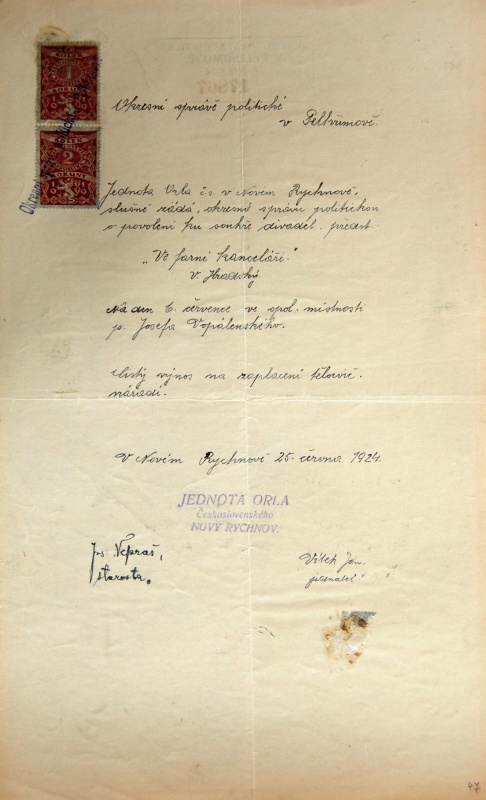 17867
KOLEK
1
KORUNY
KOLEK
2
KORUNY
Okresní správě politické
v Pelhřimově.
Jednota Orla čs. v Novém Rychnově,
slušně žádá, okresní správu politickou
o povolení ku souhře divadel. předst.
„Ve farní kanceláři."
V. Hradský.
Na den 6. července ve spol. místnosti
p. Josefa Vopálenského.
Čistý výnos na zaplacení tělocvič.
nářadí.
V Novém Rychnově 25. června 1924.
JEDNOTA ORLA
Československého
NOVÝ RYCHNOV.
Jos. Vepřaš,
starosta.
Vítek Jan.
jednatel
47